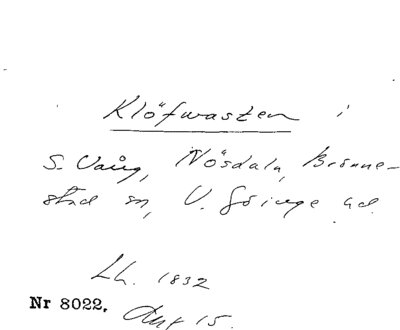 Klöfwasten i
S. Vång, Nösdala, Brönne-
stad sn, V. Göinge hd.
Lh. 1832
Nr 8022. Akt 15.